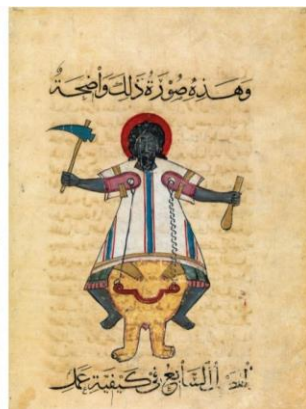 وَهَذِهِ صُوْرَةُ ذَلِكَ وَاضِحَةً
السَّابِعُ فِي كَيْفِيَّةِ عَمَلِ